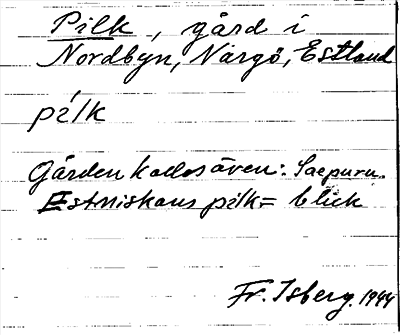 Pilk, gård i
Nordbyn, Nargö, Estland
pílk
Gården kallas även: Saepuru.
Estniskans pilk = blick
Fr. Isberg. 1944